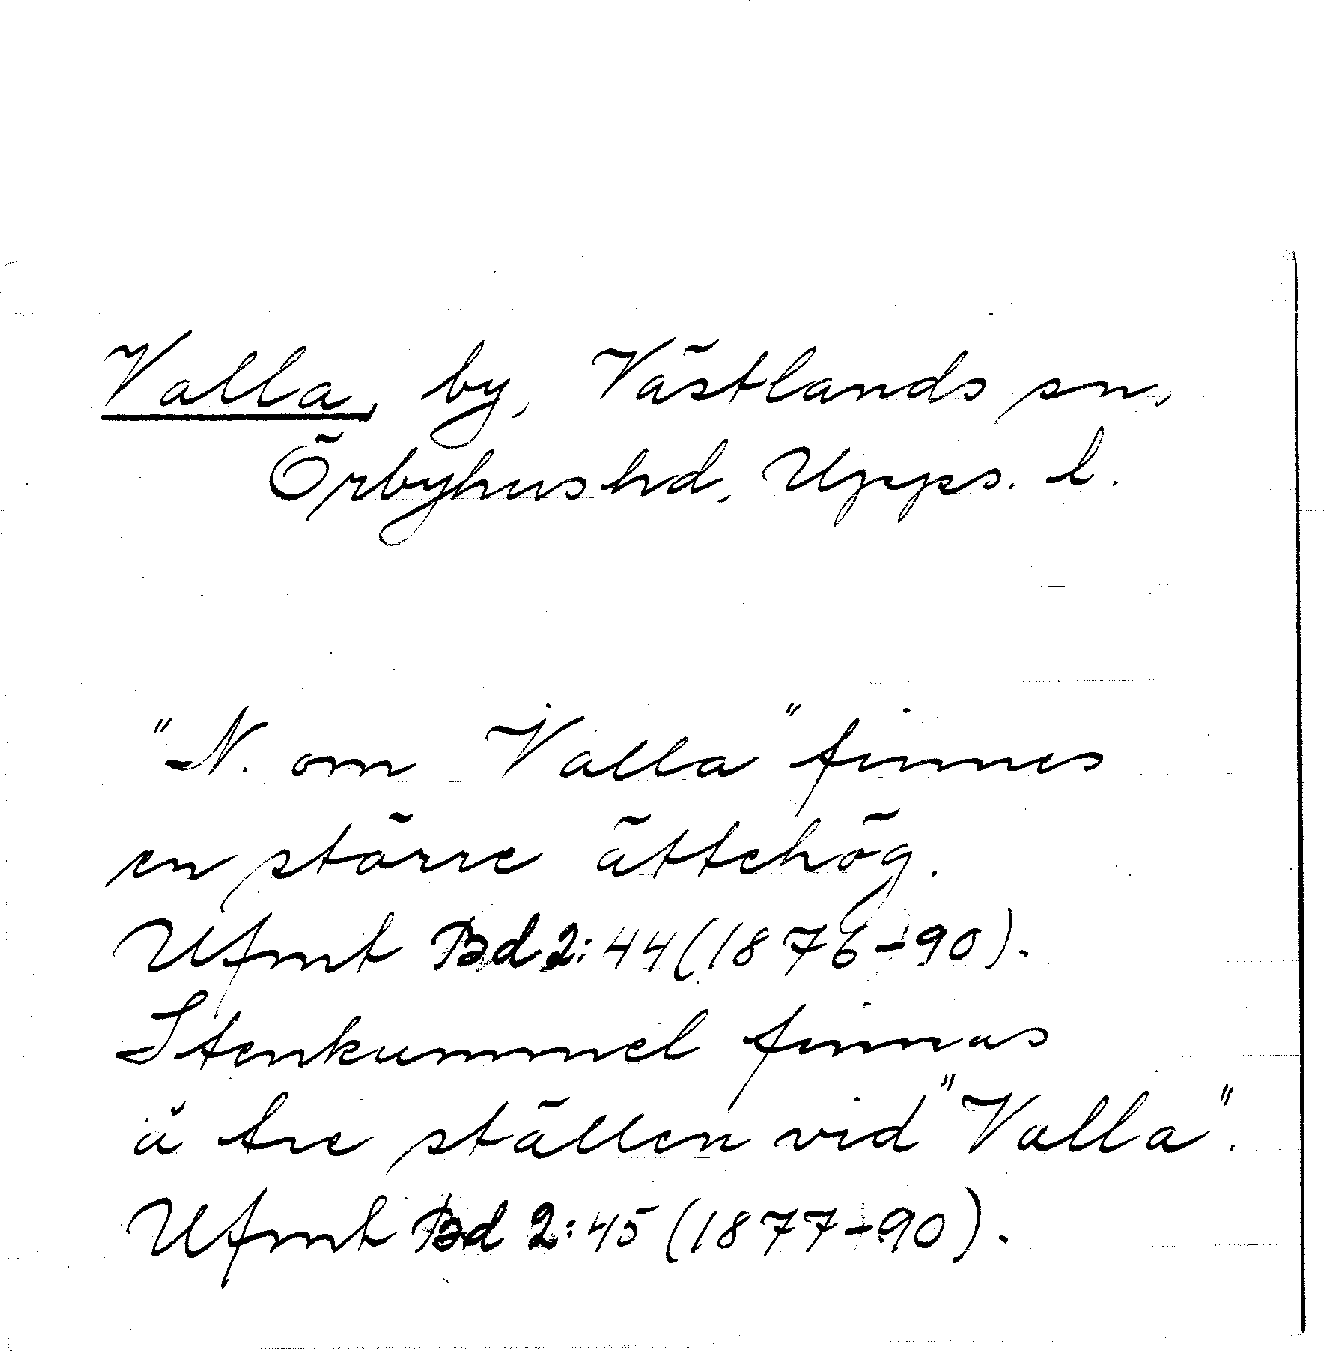 Valla, by, Västlands sn,
Örbyhus hd, Upps. l.
"N. om Valla" finnes
en större ättehög.
Ufmt Bd 2:44 (1876-90).
Stenkummel finnas
å tre ställen vid "Valla".
Ufmt Bd 2:45 (1877-90).